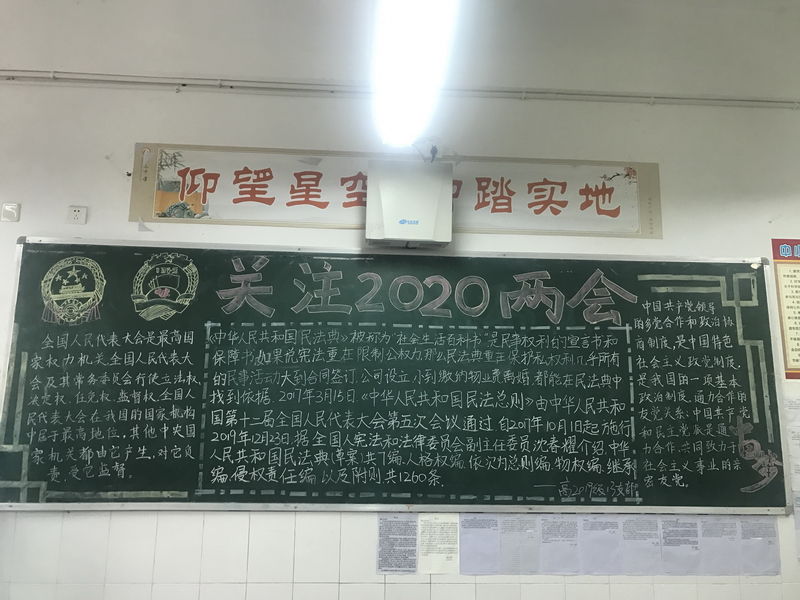 仰望星空 踏实地
关注2020两会
全国人民代表大会是最高国
家权力机关,全国人民代表大
会及其常务委员会行使立法权,
决定权,任免权,监督权,全国人
民代表大会在我国的国家机构
中居于最高地位。其他中央国
家机关都由它产生,对它负
责,受它监督。
《中华人民共和国民法典》被称为“社会生活百科书”是民事权利的宣言书和
保障书,如果说宪法重在限制公权力,那么民法典重在保护私权利,几乎所有
的民事活动大到合同签订,公司设立,小到缴纳物业费离婚,都能在民法典中
找到依据。2017年3月15日《中华人民共和国民法总则》由中华人民共和
国第十二届全国人民代表大会第五次会议通过自2017年10月1日起施行
2019年12月23日,据全国人宪法和法律委员会副主任委员沈春耀介绍,中华
人民共和国民法典(草案)共7编,人格权编,依次为总则编,物权编,继承
编,侵权责任编,以及附则共1260条.
——高2019级13支部
中国共产党领导
的多党合作和政治协
商制度,是中国特色
社会主义政党制度,
是我国的一项基本
政治制度,通力合作的
友党关系:中国共产党
和民主党派是通
力合作、共同致力于
社会主义事业的亲
密友党。
中国梦